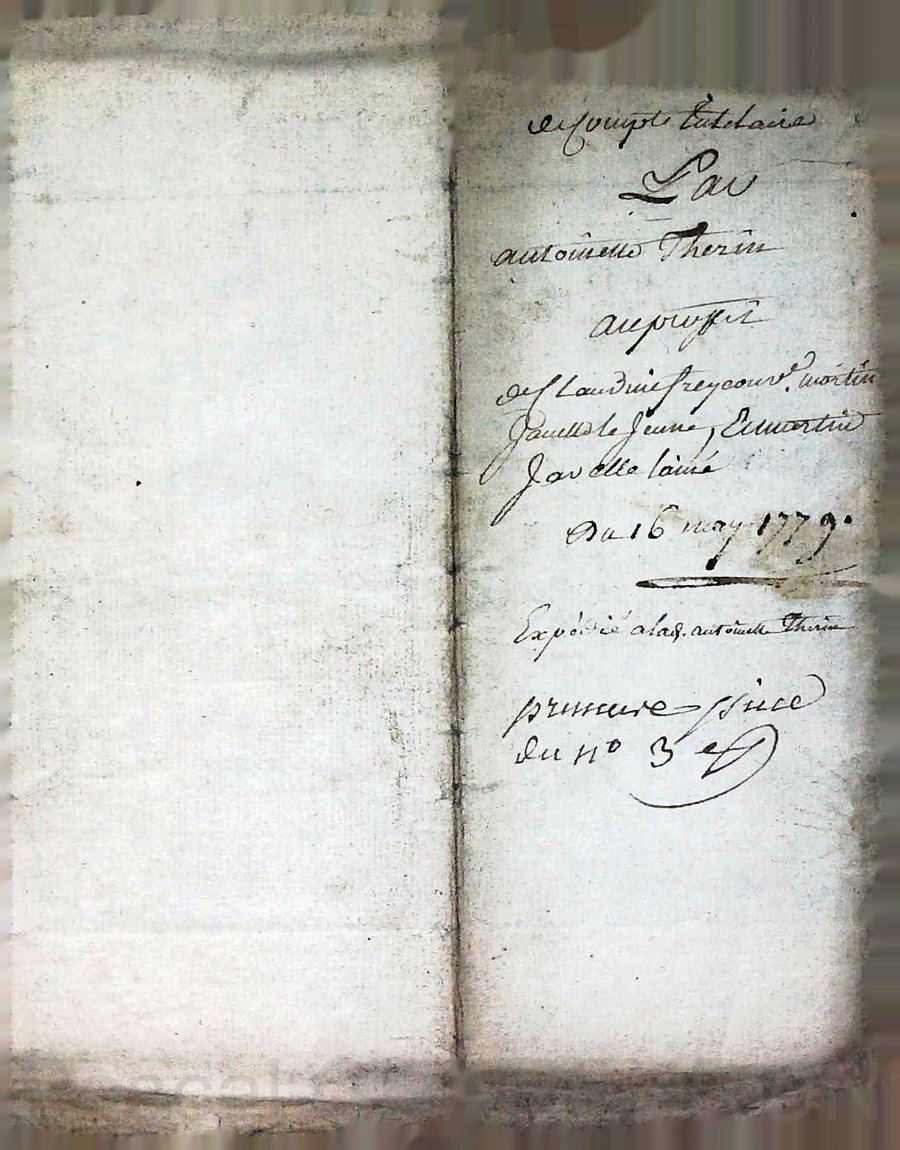 de Compte tutelaire
Par
antoinette Therin
au proffit
de Claudine freycon v.e martin
Javelle le Jeune, Et martin
Javelle lainé
Du 16 may 1779.
Expedié a lad. antoinette Therin
premiere piece
du n° 3 e